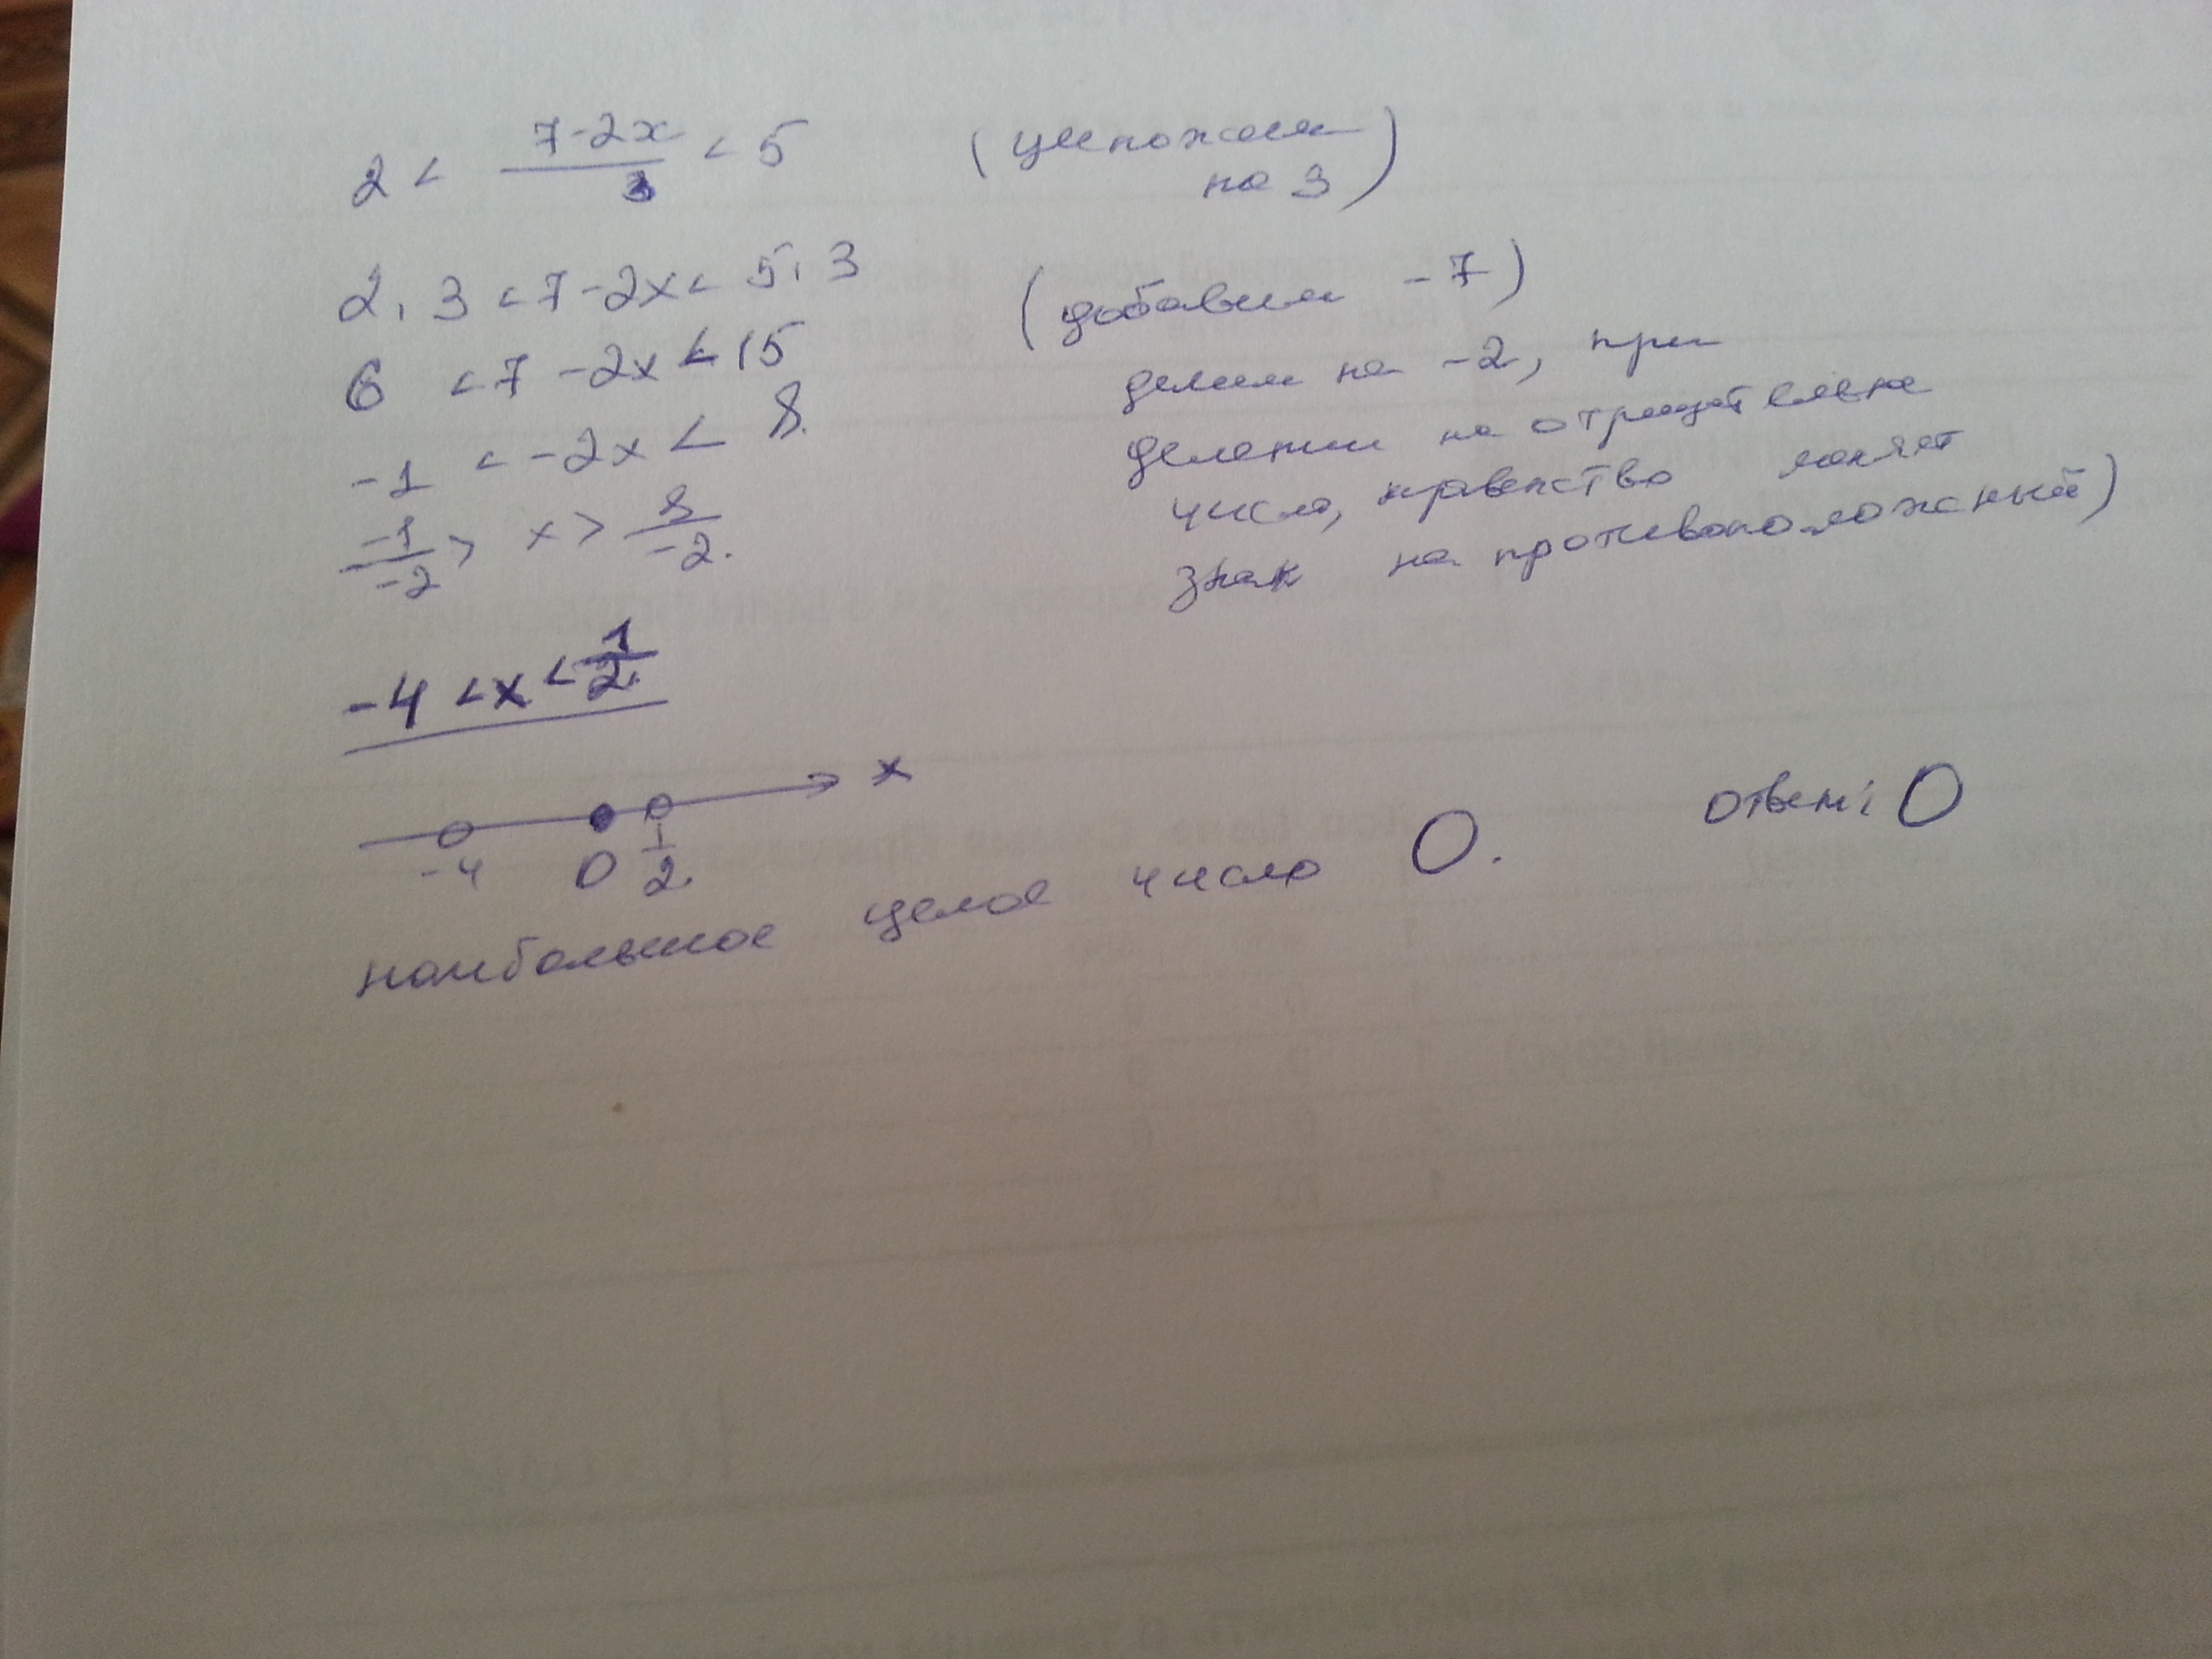 2 < 7-2x / 3 < 5 (умножаем
на 3)
2 · 3 < 7-2x < 5 · 3
6 < 7 - 2x < 15 (добавим -7)
-1 < -2x < 8. делим на -2, при
делении на отрицательна
-1/-2 > x > 8/-2. число, нравенство меняет
знак на противоположный)
-4 < x < 1/2.
x
-4 0 1/2.
наибольшое целое число 0. ответ: 0